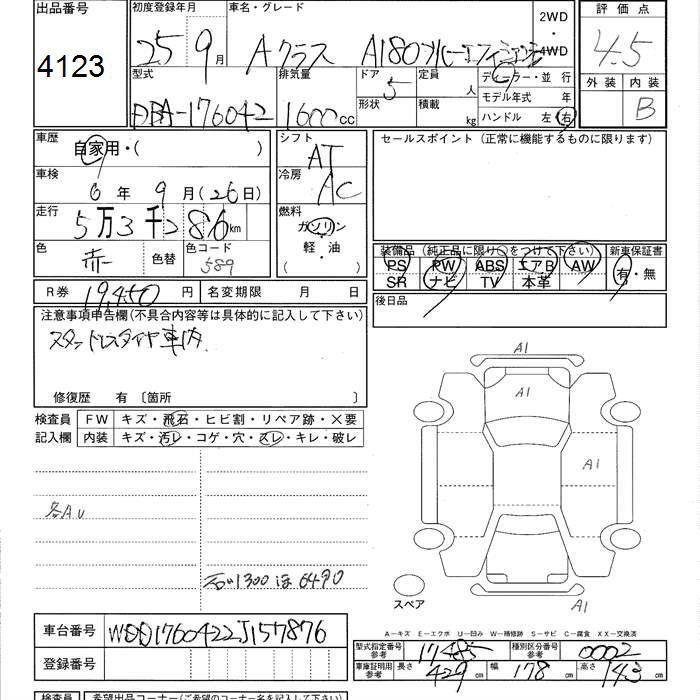 出品番号
4123
初度登録年月
25年9月
車名・グレード
Aクラス A180ブルーエフィシェンシー
2WD
・
4WD
評価点
4.5
外装 内装
B
型式
DBA-176042
排気量
1600cc
ドア
5
形状
定員
人
積載
kg
ディーラー・並行
モデル年式 年
ハンドル 左 右
車歴
自家用・( )
車検
6年9月(26日)
走行
5万3千286km
色
赤
色替
色コード
589
シフト
AT
冷房
AC
燃料
ガソリン
軽・油
( )
セールスポイント(正常に機能するものに限ります)
装備品(純正品に限り○をつけて下さい)
PS PW ABS エアB AW
SR ナビ TV 本革
新車保証書
有・無
後日品
R券 19,450円
名変期限 月 日
注意事項申告欄(不具合内容等は具体的に記入して下さい)
スタッドレスタイヤ車内
修復歴 有 〔箇所 〕
検査員
記入欄
FW キズ・飛石・ヒビ割・リペア跡・X要
内装 キズ・汚レ・コゲ・穴・スレ・キレ・破レ
各AU
A1
A1
A1
A1
スペア
A−キズ E−エクボ U−凹み W−補修跡 S−サビ C−腐食 XX−交換済
車台番号 WDD1760422J157876
登録番号
型式指定番号
参考
17485
種別区分番号
参考
0002
車庫証明用
参考
長さ 429cm 幅 178cm 高さ 143cm
検査員 希望出品コーナー(ご希望のコーナー名を記入して下さい)